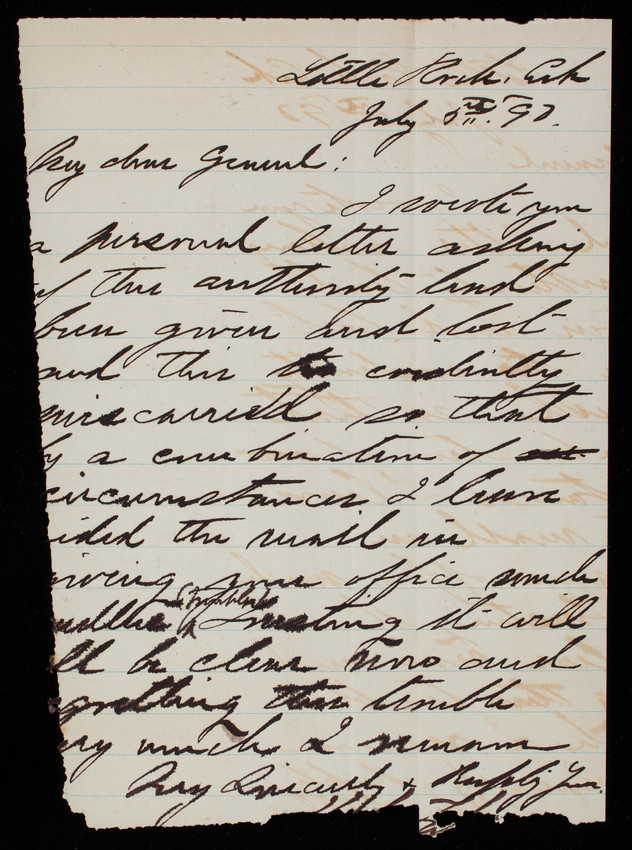 Little Rock, Ark
July 5th. 90.
My dear General:
I wrote you
a personal letter asking
if the authority had
been given and lost
and this evidently
miscarried so that
by a combination of
circumstances I have
ided the mail in
giving your office much
needless trouble Trusting it will
ll be clear now and
regretting the trouble
ery much I remain
Very Sincerely & Respfly Your